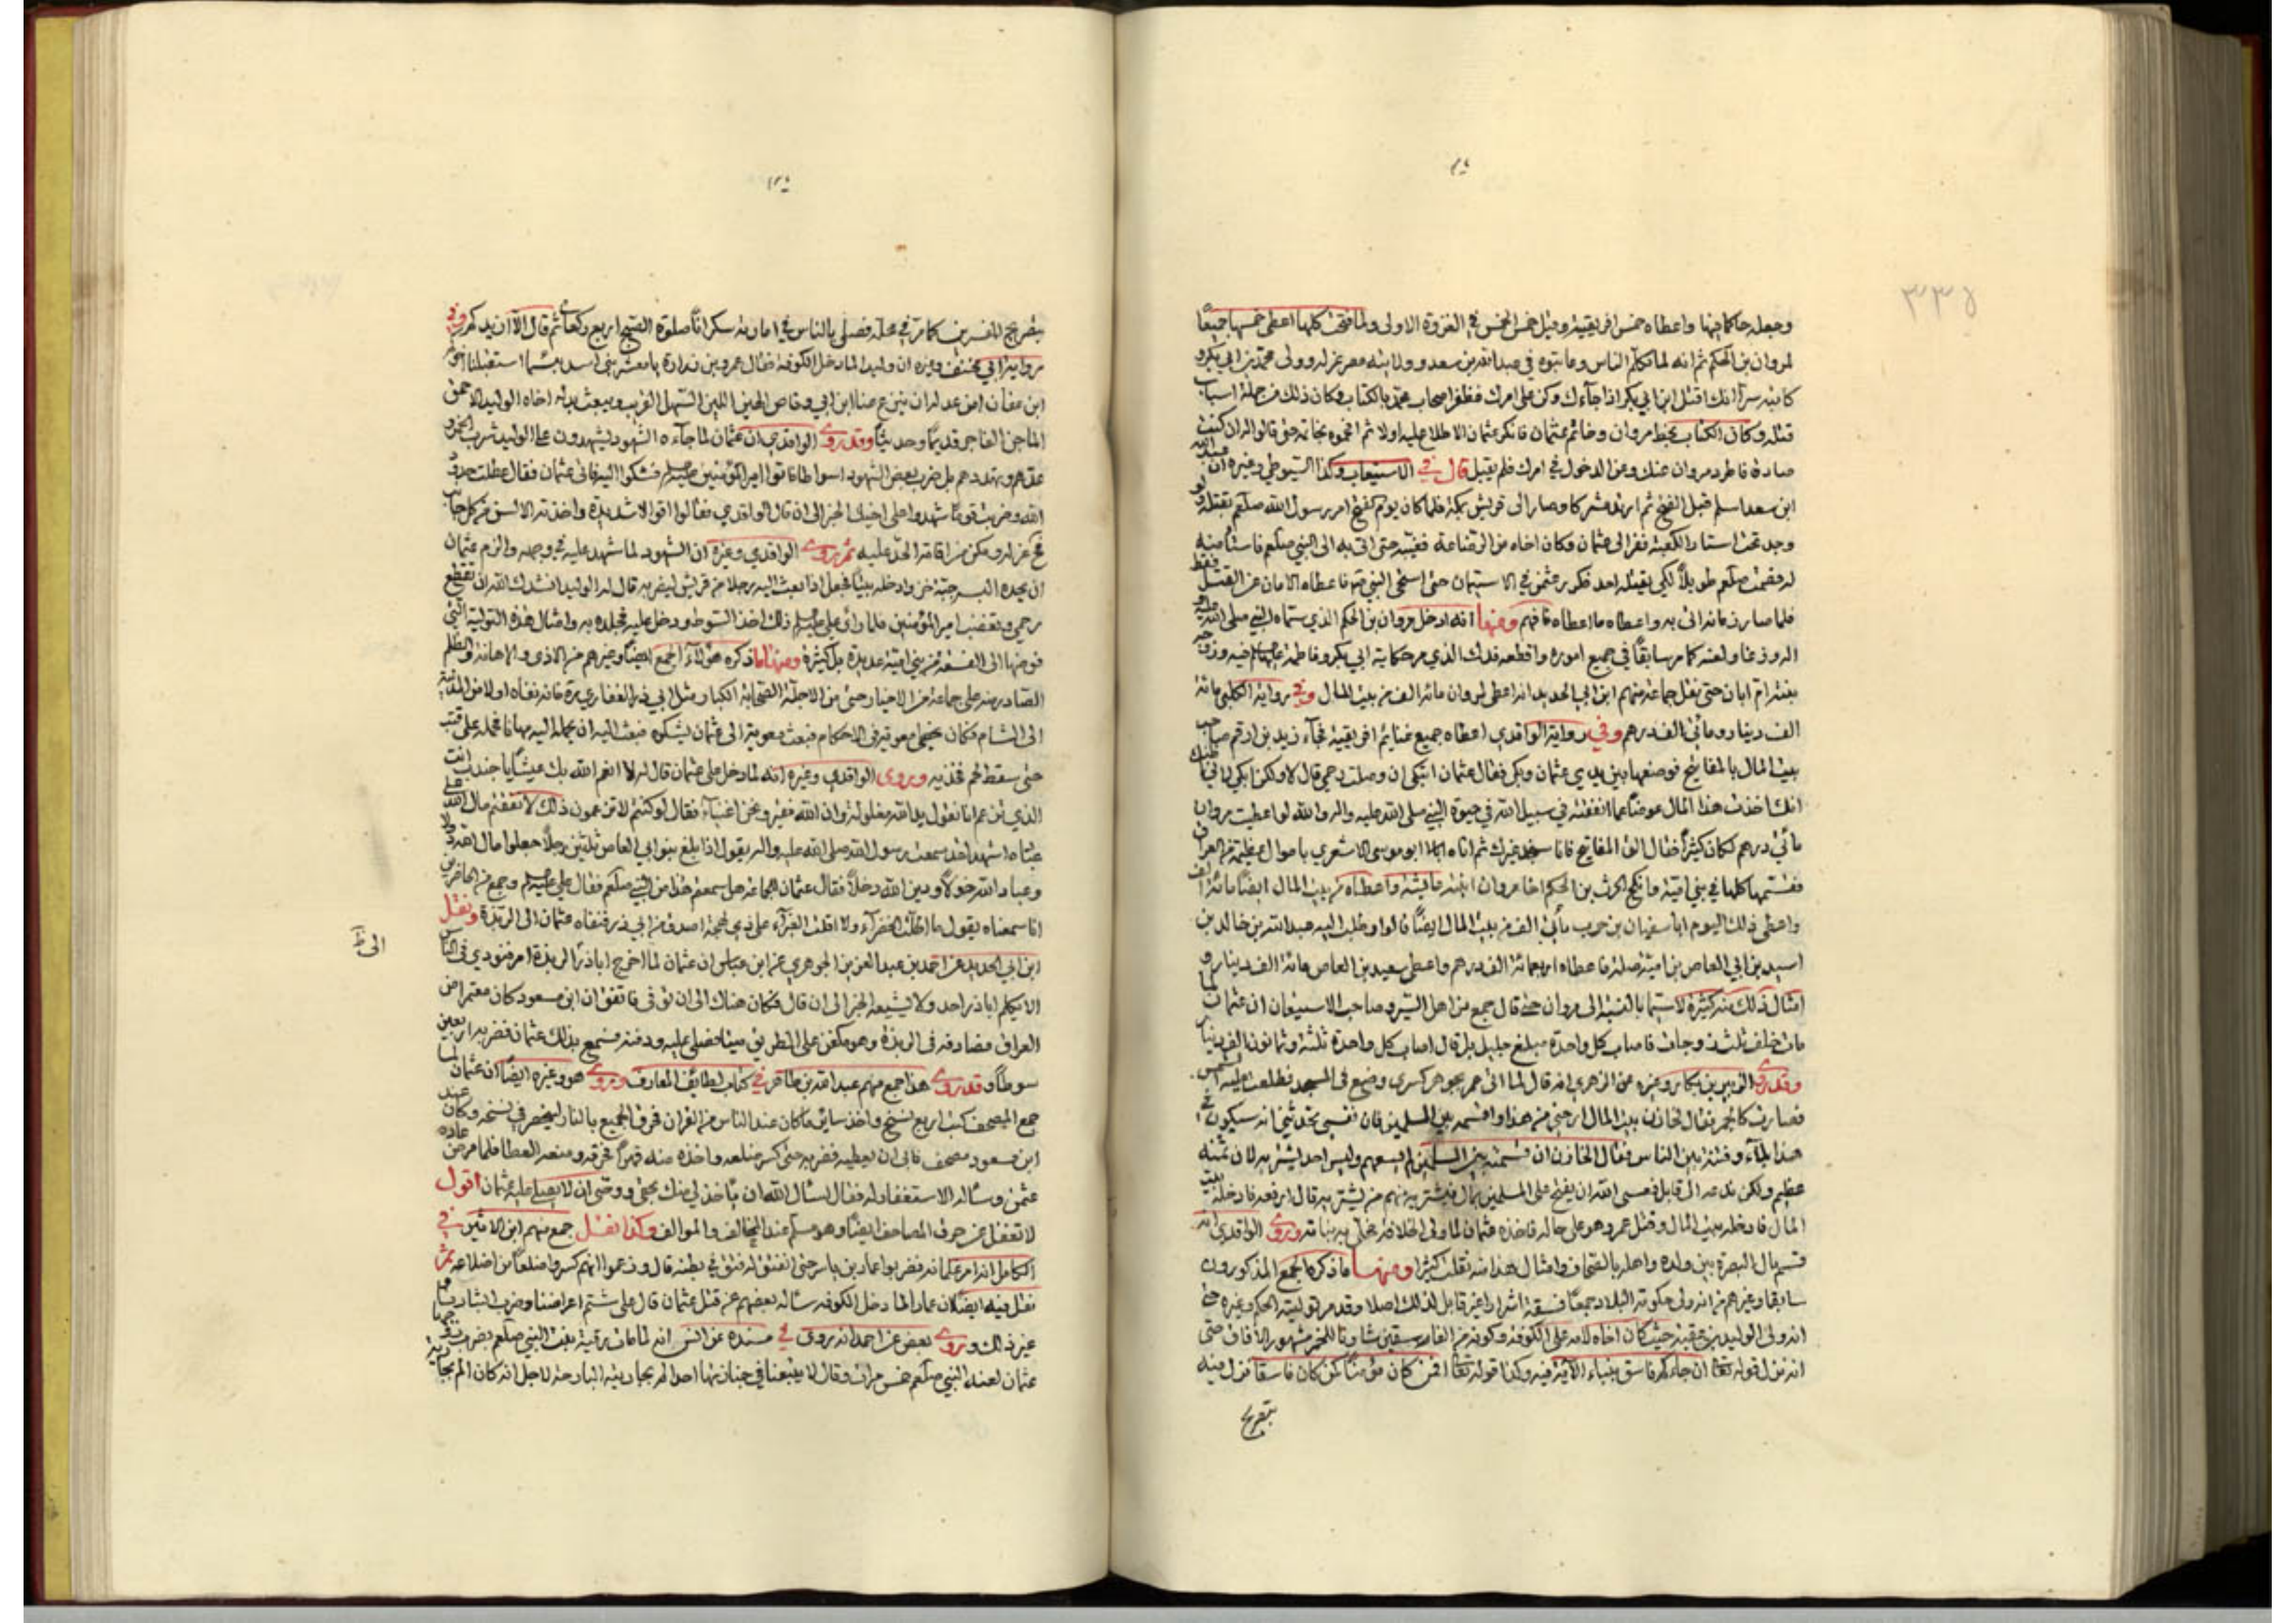 ٣٣٥
وجعله حاكما فيها واعطاه خمس افريقية وقيل خمس الخمس في الغزوة الاولى ولما فتحت كلها اعطى خمسها جميعاً
لمروان بن الحكم ثم انه لما تكلم الناس وعاتبوه في عبد الله بن سعد وولايته مصر عزله وولى محمد بن ابي بكر و
كاتبه سراً انك اقتل ابن ابي بكر اذا جاءك وكن على امرك فظفر اصحاب محمد بالكتاب وكان ذلك من جملة اسباب
قتله وكان الكتاب بخط مروان وخاتم عثمان فانكر عثمان الاطلاع عليه اولا ثم حتى قالوا له ان كنت
صادقا فاطرد مروان عنك وعن الدخول في امرك فلم يقبل قال في الاستيعاب وكذا السيوطي وغيره ان عبد الله
ابن سعد اسلم قبل الفتح ثم ارتد مشركا وصار الى قريش بمكة فلما كان يوم الفتح امر رسول الله صلعم بقتله ولو
وجد تحت استار الكعبة ففر الى عثمان وكان اخاه من الرضاعة فغيبه حتى اتى به الى النبي صلعم فاستأمنه
له فصمت صلعم طويلاً لكي يقتله احد فكرر عثمان في الاستيمان حتى استحى النبي فاعطاه الامان عن القتل فقط
فلما صار زمانه اتى به واعطاه ما اعطاه فافهم ومنها انه ادخل مروان بن الحكم الذي سماه النبي صلى الله عليه و
اله وزغا ولعنه كما مر سابقاً في جميع اموره واقطعه فدك الذي مر حكاية ابي بكر وفاطمة فيه وزوجه
بنته ام ابان حتى نقل جماعة منهم ابن ابي الحديد انه اعطى لمروان مائة الف من بيت المال وفي رواية الكلبي مائة
الف دينار ومائتي الف درهم وفي رواية الواقدي اعطاه جميع غنايم افريقية فجاء زيد بن ارقم صاحب
بيت المال بالمفاتيح فوضعها بين يدي عثمان وبكى فقال عثمان اتبكي ان وصلت رحمي قال لا ولكن ابكي لاني اظنك
انك اخذت هذا المال عوضاً عما انفقته في سبيل الله في حيوة النبي صلى الله عليه واله والله لو اعطيت مروان
مائتي درهم لكان كثيراً فقال الق المفاتيح فانا سنجد غيرك ثم اتاه ابو موسى الاشعري باموال عظيمة من العراق
فقسمها كلها في بني امية وانكح الحرث بن الحكم اخا مروان ابنته عايشة واعطاه من بيت المال ايضاً مائة الف
واعطى ذلك اليوم ابا سفيان بن حرب مائتي الف من بيت المال ايضاً قالوا وطلب اليه عبد الله بن خالد بن
اسيد بن ابي العاص بن امية صلة فاعطاه اربعمائة الف درهم واعطى سعيد بن العاص مائة الف دينار و
امثال ذلك منه كثيرة لا سيما بالنسبة الى مروان حتى قال جمع من اهل السير وصاحب الاستيعاب ان عثمان لما
مات خلف ثلث زوجات فاصاب كل واحدة مبلغ جليل بل قال اصاب كل واحدة ثلثة وثمانون الف دينار
وقد روى الزبير بن بكار وغيره عن الزهري انه قال لما اتى عمر بجوهر كسرى وضع في المسجد فطلعت عليه الشمس
فصارت كالجمر فقال لخازن بيت المال ارحني من هذا واقسمه بين المسلمين فان نفسي تحدثني انه سيكون في
هذا بلاء وفتنة بين الناس فقال الخازن ان قسمته بين المسلمين لم يسعهم وليس احد يشتريه لان ثمنه
عظيم ولكن ندعه الى قابل فعسى الله ان يفتح على المسلمين بمال فيشتريه منهم من يشتريه قال ارفعه فادخله بيت
المال فادخله بيت المال وقتل عمر وهو على حاله فاخذه عثمان لما ولى الخلافة فحلى به بناته وروى الواقدي انه
قسم مال البصرة بين ولده واهله بالصحاف وامثال هذا منه نقلت كثيرا ومنها ما ذكره الجمع المذكورون
سابقا وغيرهم من انه ولى حكومة البلاد جمعاً فسقة اشراراً غير قابل لذلك اصلا وقد مر توليته الحكم وغيره حتى
انه ولى الوليد بن عقبة حيث كان اخاه لامه على الكوفة وكونه من الفاسقين شاربا للخمر مشهور الآفاق حتى
انه نزل قوله تعالى ان جاءكم فاسق بنباء الآية فيه وكذا قوله تعالى افمن كان مؤمناً كمن كان فاسقا نزل فيه
بتصريح
بتصريح المفسرين كما مر في محله فصلى بالناس في امارته سكراناً صلوة الصبح اربع ركعات ثم قال الا ازيدكم وفي
رواية ابي مخنف وغيره ان وليدا لما دخل الكوفة فقال عمرو بن زرارة يا معشر بني اسد بئسما استقبلنا اخوكم
ابن عفان امن عدله ان ينزع عنا ابن ابي وقاص الهين اللين السهل القريب ويبعث بدله اخاه الوليد الاحمق
الماجن الفاجر قديماً وحديثاً وقد روى الواقدي ان عثمان لما جاءه الشهود يشهدون على الوليد شرب الخمر و
عدهم وتهددهم بل ضرب بعض الشهود اسواطا فاتوا امير المؤمنين فشكوا اليه فاتى عثمان فقال عطلت حدود
الله وضربت قوماً شهدوا على اخيك الخبر الى ان قال الواقدي فقالوا اقوالا شديدة واخذته الالسن من كل جانب
حتى عزله ومكن من اقامة الحد عليه ثم روى الواقدي وغيره ان الشهود لما شهد عليه في وجهه والزم عثمان
ان يحده البسه جبة خز وادخله بيتاً فجعل اذا بعث اليه رجلا من قريش ليضربه قال له الوليد انشدك الله ان تقطع
رحمي وتغضب امير المؤمنين فلما رأى علي ذلك اخذ السوط ودخل عليه فجلده به وامثال هذه التولية التي
فوضها الى الفسقة من بني امية عديدة بل كثيرة ومنها ما ذكره هؤلاء الجمع ايضاً وغيرهم من الاذى والاهانة والظلم
الصادر منه على جماعة من الاخيار حتى من الاجلة الصحابة الكبار مثل ابي ذر الغفاري فانه نفاه اولا من المدينة
الى الشام فكان يخطئ معوية في الاحكام فبعث معوية الى عثمان يشكوه فبعث اليه ان يحمله اليه مهانا فحمله على قتب
حتى سقط لحم فخذيه ويروى الواقدي وغيره انه لما دخل على عثمان قال له لا انعم الله بك عيشاً يا جنيدب انت
الذي تزعم انا نقول يد الله مغلولة وان الله فقير ونحن اغنياء فقال لو كنتم لا تزعمون ذلك لانفقتم مال الله على
عباده اشهد اني سمعت رسول الله صلى الله عليه واله يقول اذا بلغ بنو ابي العاص ثلثين رجلاً جعلوا مال الله دولا
وعباد الله خولاً ودين الله دخلاً فقال عثمان للجماعة هل سمعتم هذا من النبي صلعم فقال علي وجمع من الحاضرين
انا سمعناه يقول ما اظلت الخضراء ولا اقلت الغبراء على ذي لهجة اصدق من ابي ذر فنفاه عثمان الى الربذة ونقل
ابن ابي الحديد عن احمد بن عبد العزيز الجوهري عن ابن عباس ان عثمان لما اخرج اباذر الى الربذة امر فنودي في الناس
الا يكلم اباذر احد ولا يشيعه الخبر الى ان قال فكان هناك الى ان توفى فاتفق ان ابن مسعود كان معتمرا من
العراق فصادفه في الربذة وهو مكفن على الطريق ميتا فصلى عليه ودفنه فسمع بذلك عثمان فضربه اربعين
سوطاً وقد روى هذا جمع منهم عبد الله بن طاهر في كتاب لطايف المعارف وروى هو وغيره ايضاً ان عثمان لما
جمع المصحف كتب اربع نسخ واخذ ساير ما كان عند الناس من القران فحرق الجميع بالنار لينحصر في نسخه وكان عند
ابن مسعود مصحف فابى ان يعطيه فضربه حتى كسر ضلعه واخذه منه قهراً فحرقه ومنعه العطا فلما مرض عاده
عثمن وسأله الاستغفار له فقال اسأل الله ان يأخذ لي منك بحقي ووصى ان لا يصلي عليه عثمان اقول
لا تغفل عن حرق المصاحف ايضاً وهو مسلم عند المخالف والموالف وكذا نقل جمع منهم ابن الاثير في
الكامل انه امر غلمانه فضربوا عمار بن ياسر حتى انفتق له فتق في بطنه قال وزعموا انهم كسروا ضلعاً من اضلاعه ثم
نقل فيه ايضاً ان عمارا لما دخل الكوفة سأله بعضهم عن قتل عثمان قال على شتم اعراضنا وضرب ابشارنا و
غير ذلك وروى بعض عن احمد انه روى في مسنده عن انس انه لما مات رقية بنت النبي صلعم بضرب زوجها
عثمان لعنه النبي صلعم خمس مرات وقال لا يتبعنا في جنازتها احد الم بجاريته البارحة لاجل انه كان الم بجارية